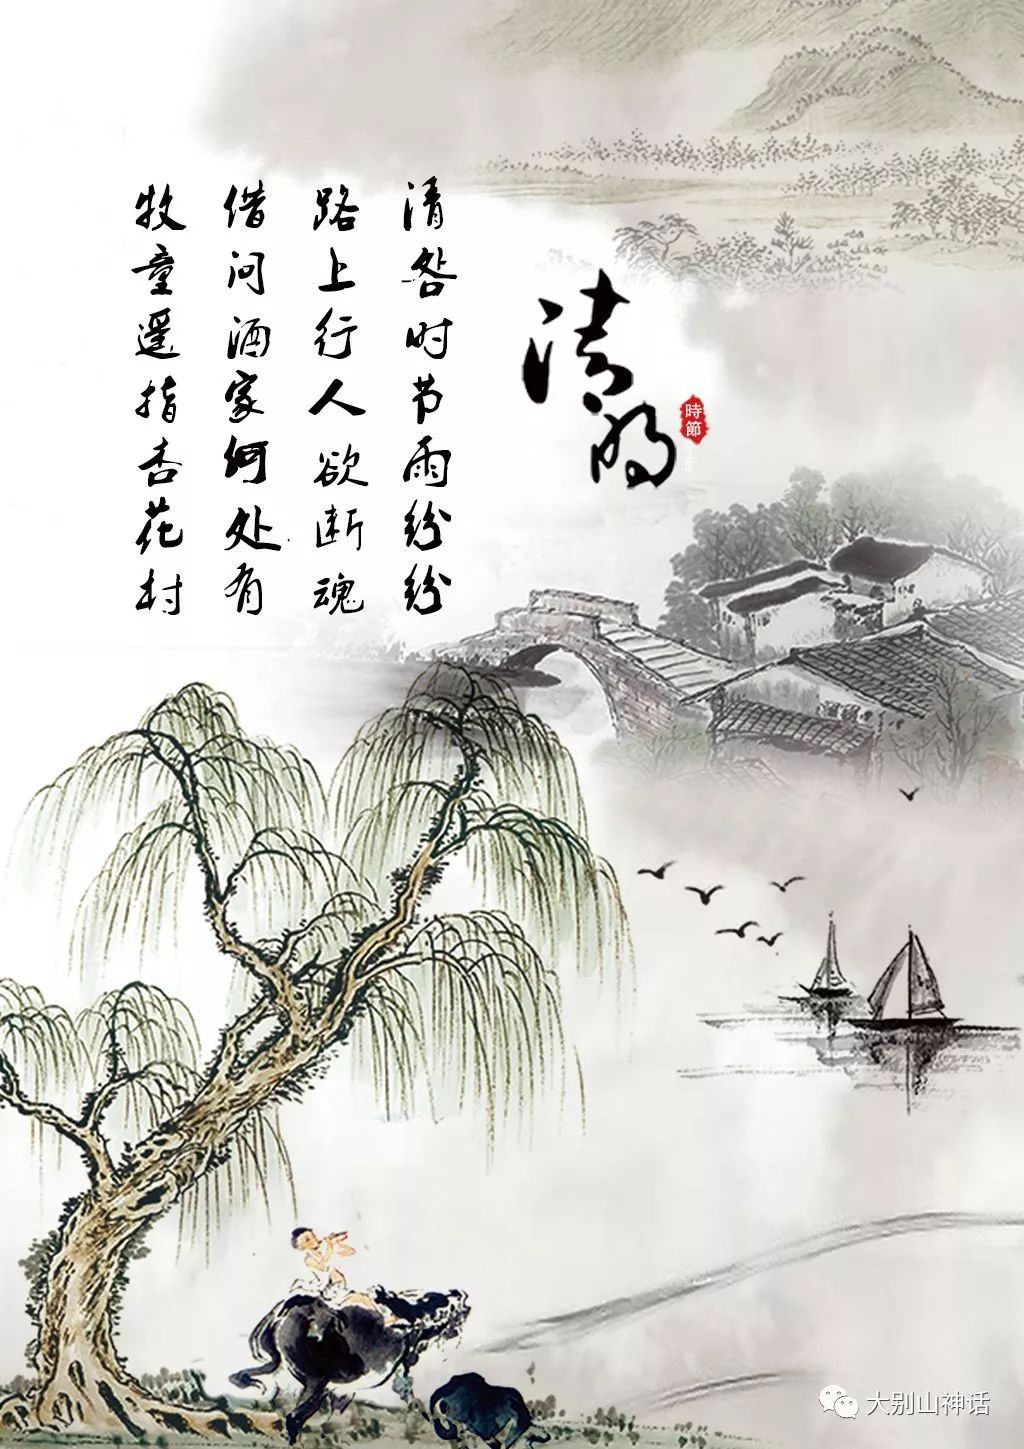 清时节雨纷纷
路上行人欲断魂
借问酒家何处有
牧童遥指杏花村
清明
時節
大别山神话